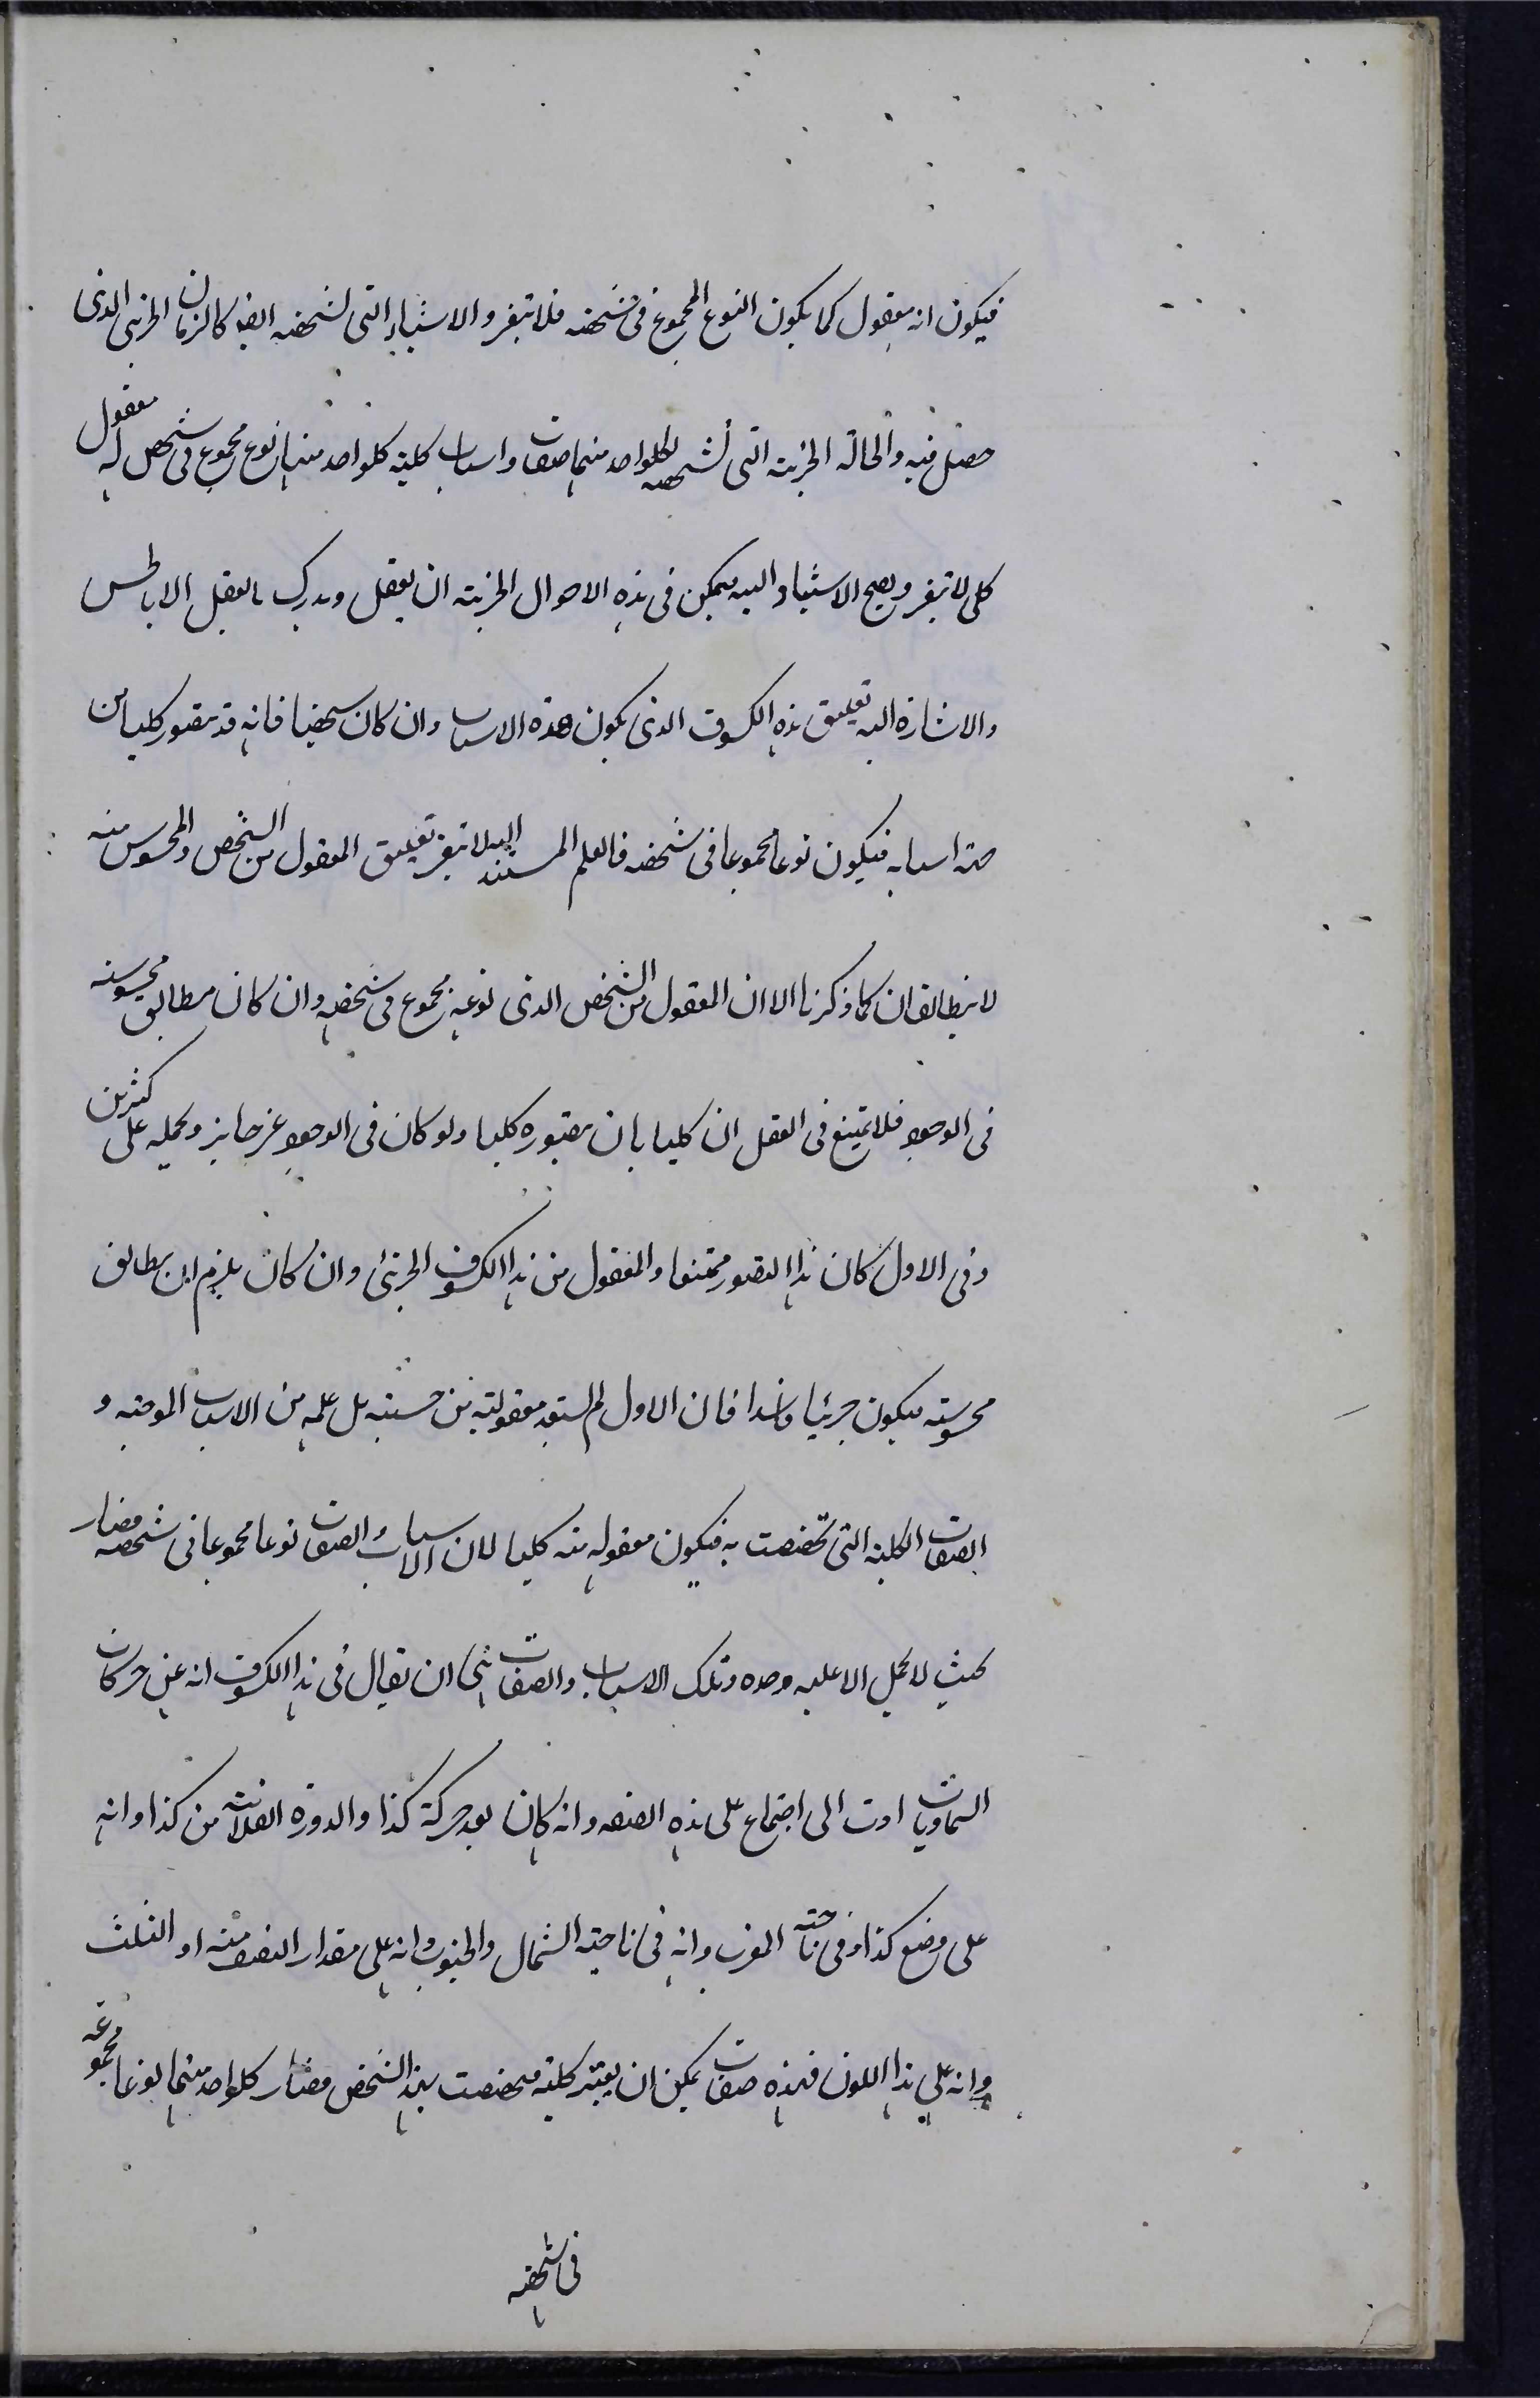 فيكون انه معقول كما يكون النوع المجموع فى شخصه فلا يتغير و الاشياء التى تشخصه ايضا كالزمان الجزئى الذى
حصل فيه والحالة الجزئية التى تشخصه لكلواحد منهما صفات واسباب كلية كلواحد منها نوع مجموع فى شخص له معقول
كلى لا يتغير ويصح الاستناد اليه فيمكن فى هذه الاحوال الجزئية ان يعقل ويدرك بالعقل الا بالحس
والاشارة اليه تعليق هذه الكسوف الذى يكون هذه الاسباب وان كان شخصيا فانه قد يتصور كليا من
جهة اسبابه فيكون نوعا مجموعا فى شخصه فالعلم المستند اليه لا يتغير تعليق المعقول من الشخص والمحسوس منه
لا يتطابقان كما ذكرنا الا ان المعقول من الشخص الذى نوعه مجموع فى شخصه وان كان مطابق محسوسه
فى الوجود فلا يمتنع فى العقل ان كليا بان يتصوره كليا ولو كان فى الوجود غير جايز وبحمله على كثيرين
وفى الاول كان هذا التصور ممتنعا والمعقول من هذا الكسوف الجزئى وان كان يلزم ان يطابق
محسوسته فيكون جزئيا فاسدا فان الاول لم يستفد معقوليته من حسيته بل علمه من الاسباب الموجبه و
الصفات الكلية التى تخصصت به فيكون معقوله منه كليا لان الاسباب والصفات نوعا مجموعا فى شخصه فصار
بحيث لا يحمل الا عليه وحده وتلك الاسباب والصفات هى ان يقال فى هذا الكسوف انه عن حركات
السماويات ادت الى اجتماع على هذه الصفه وانه كان بعد حركة كذا والدورة الفلانية من كذا وانه
على وضع كذا وفى ناحية المغرب وانه فى ناحية الشمال والجنوب وانه على مقدار النصف منه او الثلث
وانه على هذا اللون فهذه صفات يمكن ان يعتبر كلية فتخصصت بهذا الشخص فصار كلواحد منهما نوعا مجموعه
فى شخصه